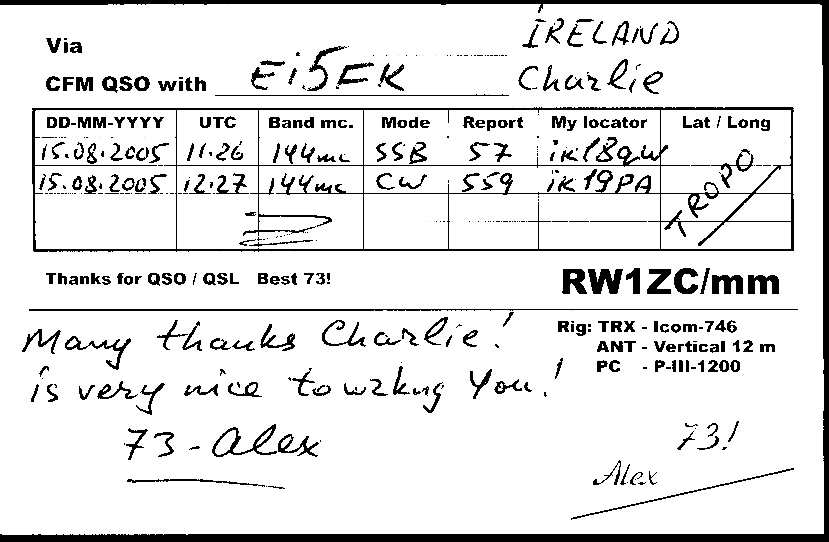 Via IRELAND
CFM QSO with Ei5FK Charlie
DD-MM-YYYY UTC Band mc. Mode Report My locator Lat / Long
15.08.2005 11.26 144mc SSB 57 iK18QW
15.08.2005 12.27 144mc CW 559 iK19PA
TROPO
Thanks for QSO / QSL Best 73!
RW1ZC/mm
Many thanks Charlie!
is very nice to wrkng You!
73 - Alex
Rig: TRX - Icom-746
ANT - Vertical 12 m
PC - P-III-1200
73!
Alex